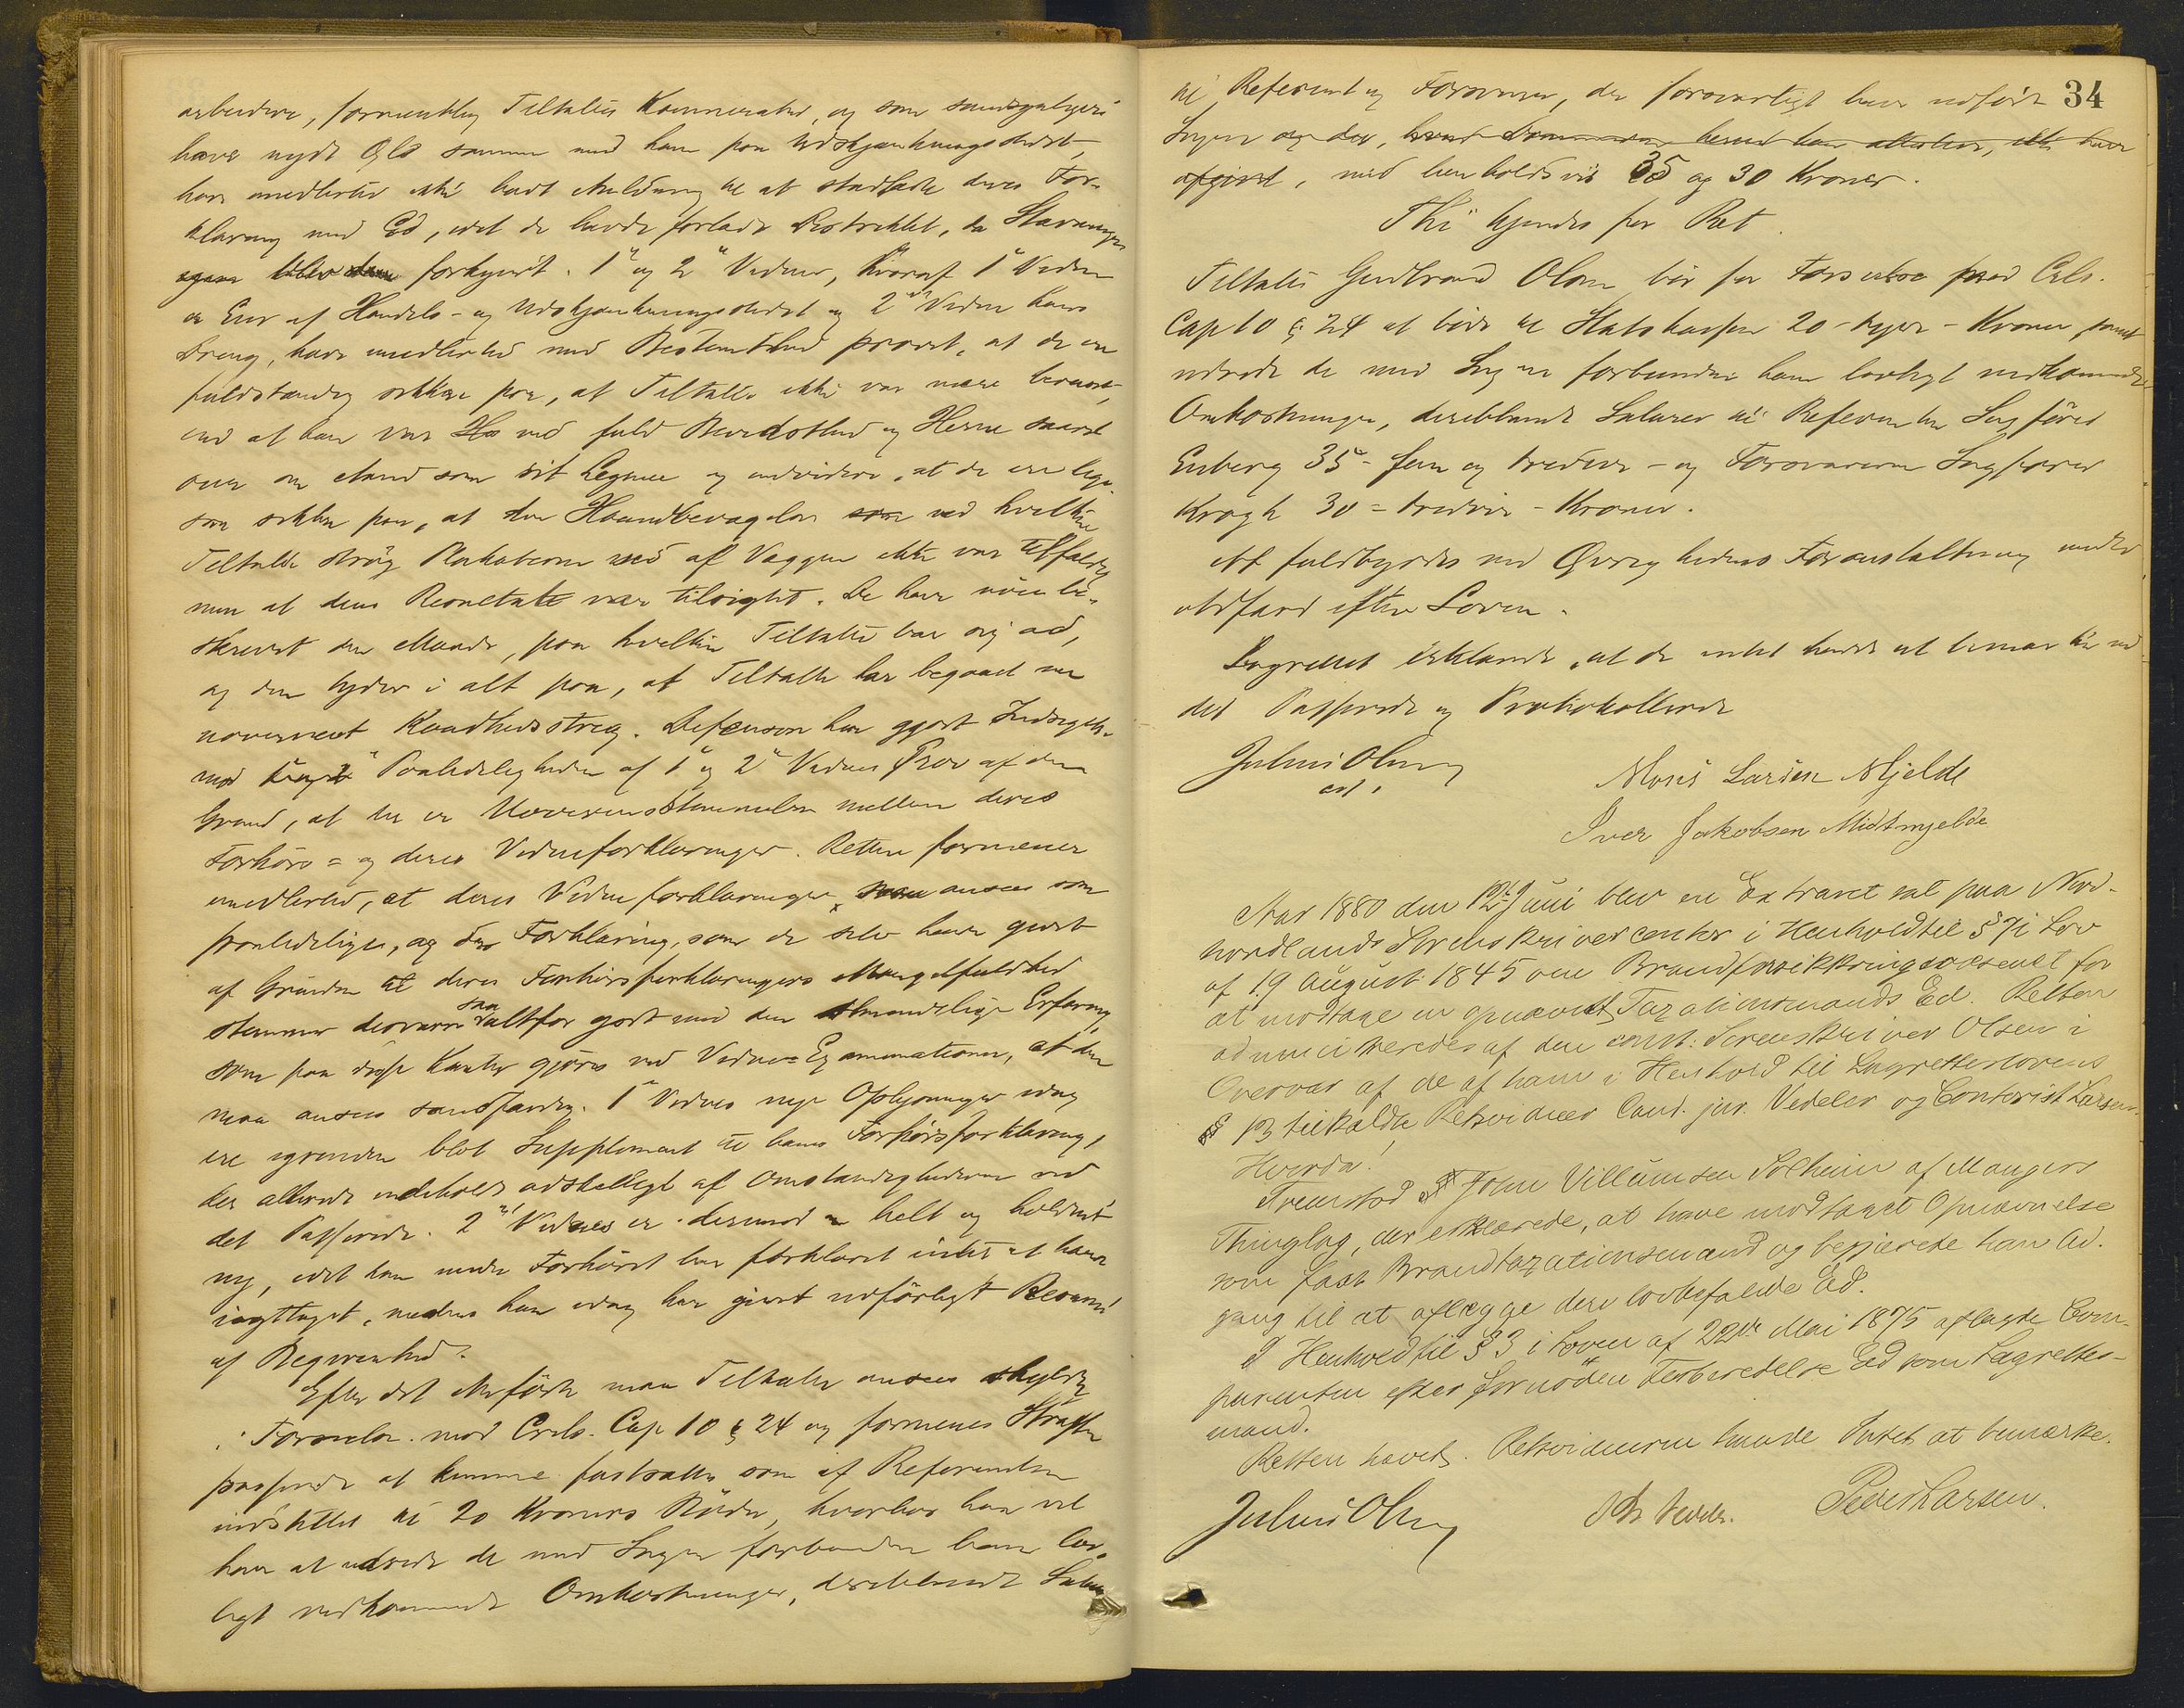 arbeidere, formentlig Tiltaltes Kammerater, og som samtykkeri
have nydt Øls sammen med ham paa Udskjænkningsstedet,
have imidlertid ikke havt Anledning til at stadfæste deres For-
klaring med Ed, idet de havde forladt Distriktet, da Stævningen
forkyndt. 1ste og 2det Vidner, hvoraf 1ste Vidne
er Eier af Handels- og Udskjænkningsstedet og 2det Vidne hans
Dreng, have imidlertid med Bestemthed provet, at de ere
fuldstændig sikkre paa, at Tiltalte ikke var mere beruset,
end at han var ved fuld Bevidsthed og Herre saavel
over sin Aand som sit Legeme og endvidere, at de ere lige-
saa sikkre paa, at den Haandbevægelse ved hvilken
Tiltalte strøg Plakaterne ned af Væggen ikke var tilfældig
men at dens Resultat var tilsigtet. De have nøie be-
skrevet den Maade, paa hvilken Tiltalte bar sig ad,
og den tyder i alt paa, at Tiltalte har begaaet en
uoverveiet Kaadhedsstreg. Defensor har gjort Indsigelse
mod Paalideligheden af 1ste og 2det Vidnes Prov af den
Grund, at der er Uoverensstemmelse mellem deres
Forhørs- og deres Vidneforklaringer. Retten formener
imidlertid, at deres Vidneforklaringer maa ansees som
paalidelige, og den Forklaring, som de selv have givet
af Grunden til deres Forhørsforklaringers Mangelfuldhed
stemmer desværre saa altfor godt med den almindelige Erfaring,
som paa disse Kanter gjøres ved Vidne-Examinationer, at den
maa ansees sandfærdig. 1ste Vidnes nye Oplysninger idag
ere igrunden blot Supplement til hans Forhørsforklaring,
der allerede indeholdt adskilligt af Omstændighederne ved
det Passerede. 2det Vidnes er derimod helt og holdent
ny, idet han under Forhøret har forklaret intet at have
iagttaget, medens han idag har givet udførligt Resumé
af Begivenhed.
Efter det Anførte maa Tiltalte ansees skyldig
i Forseelse mod Crls. Cap 10 § 24 og formenes Straffen
passende at kunne fastsættes som af Referenten
indstillet til 20 Kroners Bøder, hvorhos han vil
have at udrede de med Sagen forbundne ham lov-
ligt vedkommende Omkostninger, deriblandt Salær
til Referent og Forsvarer, der forsvarligt have udført 34
Sagen og der, hvad Dommeren herved har attestere, ikke have
afgivet, med henholdsvis 35 og 30 Kroner.
Thi kjendes for Ret
Tiltalte Gudbrand Olsen bør for Forseelse mod Crls.
Cap 10 § 24 at bøde til Statskassen 20 - tyve - Kroner samt
udrede de med Sagen forbundne ham lovligt vedkommende
Omkostninger, deriblandt Salærer til Referenten Sagfører
Enberg 35 - fem og tredive - og Forsvareren Sagfører
Krogh 30 = tredive - Kroner.
At fuldbyrdes ved Øvrighedens Foranstaltning under
Adfærd efter Loven.
Lagrettet erklærede, at de intet havde at bemærke ved
det Passerede og Protokollerede
Julius Olsen
cst.
Mons Larsen Mjelde
Iver Jakobsen Midtmjelde
Aar 1880 den 12te Juni blev en Extraret sat paa Nord-
hordlands Sorenskrivercontor i Henhold til § 7 i Lov
af 19 August 1845 om Brandforsikkringsvæsenet for
at modtage en opnævnt Taxationsmands Ed. Retten
administreredes af den const. Sorenskriver Olsen i
Overvær af de af ham i Henhold til Lagrettelovens
§ 13 tilkaldte Retsvidner Cand. jur. Vedeler og Contorist Larsen.
Hvorda!
Fremstod John Villumsen Solheim af Mangers
Thinglag, der erklærede, at have modtaget Opnævnelse
som fast Brandtaxationsmand og begjærede han Ad-
gang til at aflægge den lovbefalede Ed.
I Henhold til § 3 i Loven af 22de Mai 1875 aflagde Com-
parenten efter fornøden Forberedelse Ed som Lagrettes-
mand.
Retten hævet. Retsvidnerne havde Intet at bemærke.
Julius Olsen
Vedeler. Peder Larsen.